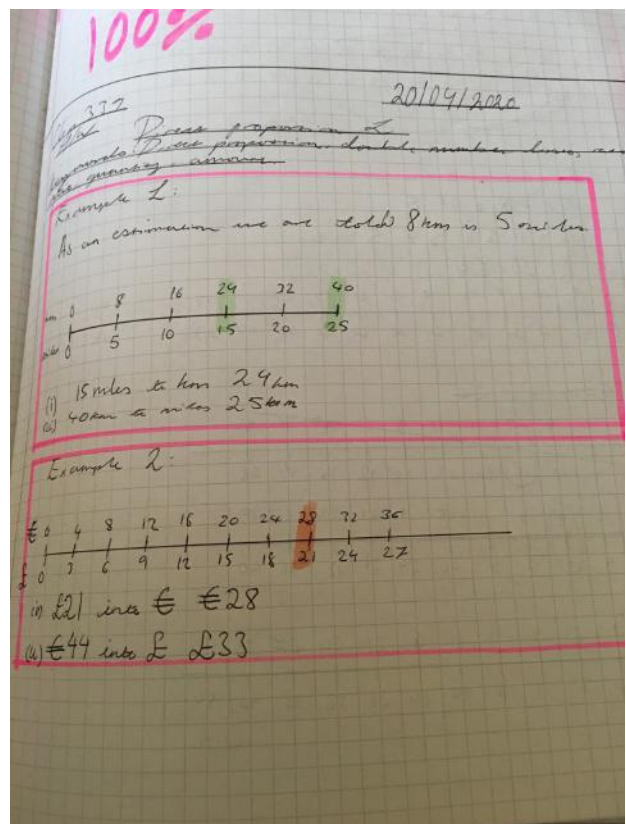 100%
20/04/2020
332
C/W Direct proportion 2
Keywords: Direct proportion, double, number lines,
quantity, amount
Example 1:
As an estimation we are told 8km is 5 miles
km 0 8 16 24 32 40
miles 0 5 10 15 20 25
(i) 15miles to km 24km
(ii) 40km to miles 25
Example 2:
€ 0 4 8 12 16 20 24 28 32 36
£ 0 3 6 9 12 15 18 21 24 27
(i) £21 into € €28
(ii) €44 into £ £33